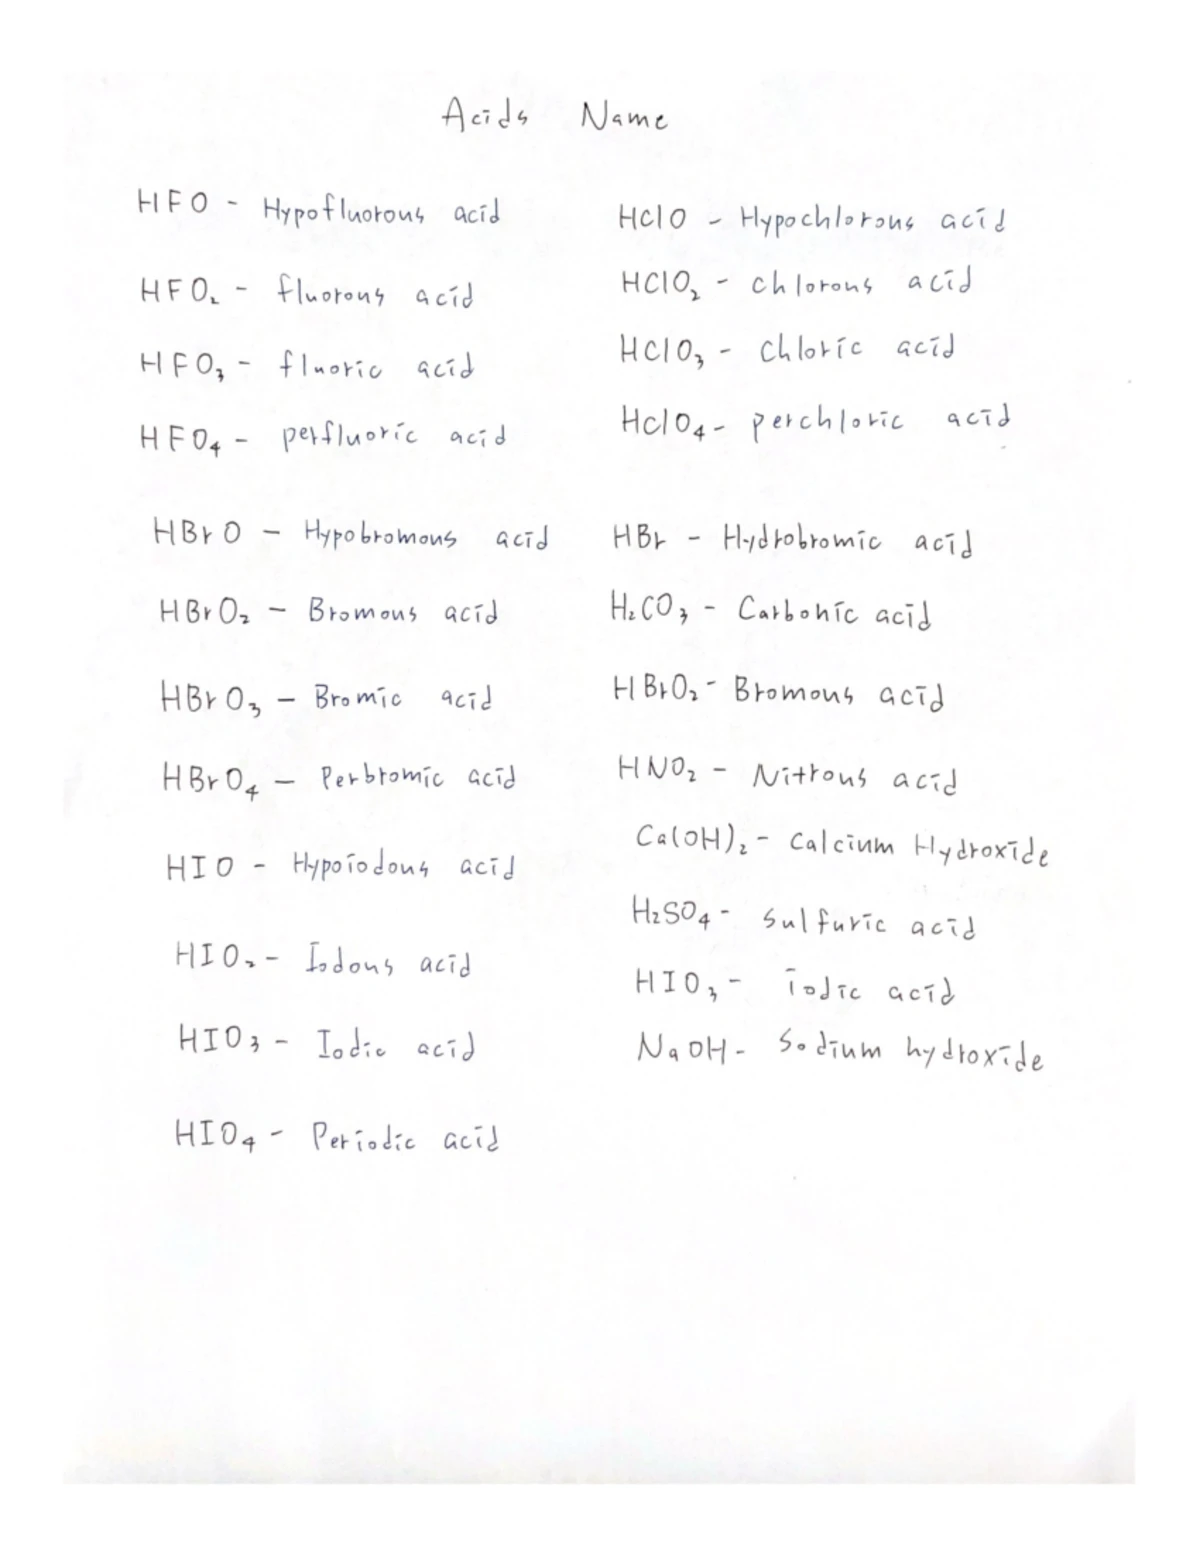 Acids Name
HFO - Hypofluorous acid
HFO₂ - fluorous acid
HFO₃ - fluoric acid
HFO₄ - perfluoric acid
HBrO - Hypobromous acid
HBrO₂ - Bromous acid
HBrO₃ - Bromic acid
HBrO₄ - Perbromic acid
HIO - Hypoiodous acid
HIO₂ - Iodous acid
HIO₃ - Iodic acid
HIO₄ - Periodic acid
HClO - Hypochlorous acid
HClO₂ - chlorous acid
HClO₃ - chloric acid
HClO₄ - perchloric acid
HBr - Hydrobromic acid
H₂CO₃ - Carbonic acid
HBrO₂ - Bromous acid
HNO₂ - Nitrous acid
Ca(OH)₂ - Calcium Hydroxide
H₂SO₄ - Sulfuric acid
HIO₃ - iodic acid
NaOH - Sodium hydroxide